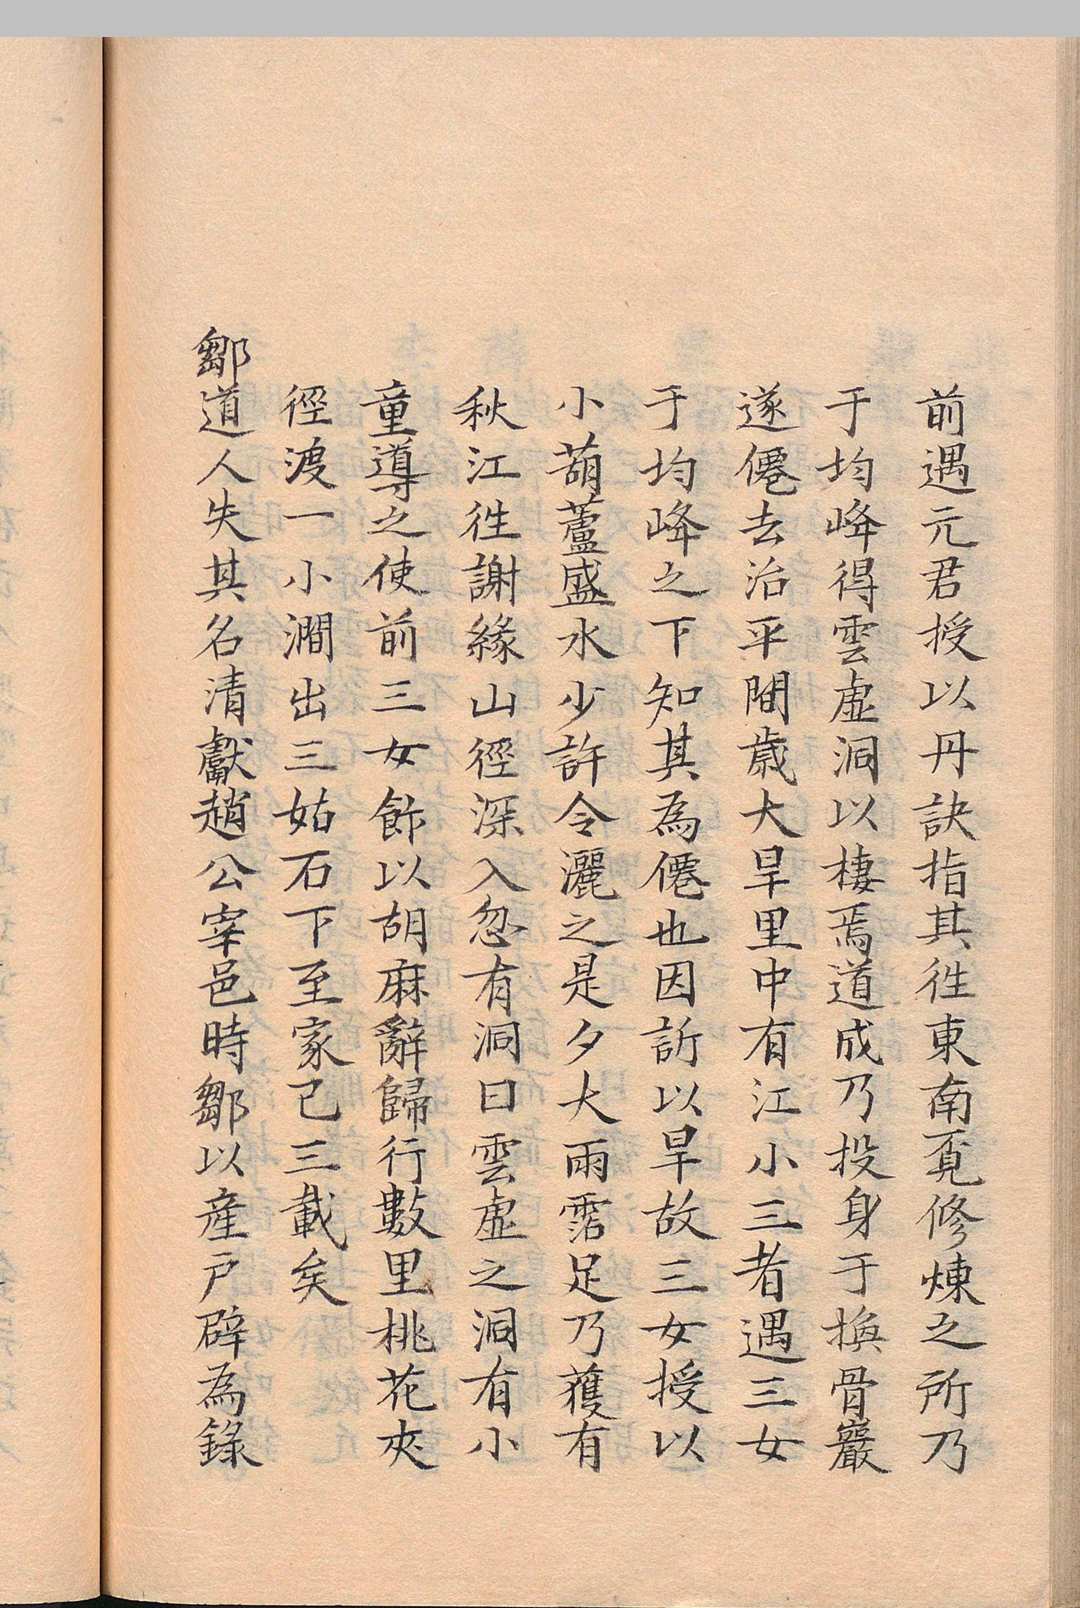 前遇元君授以丹訣指其徃東南覔修煉之所乃
于均峰得雲虛洞以棲焉道成乃投身于換骨巖
遂僊去治平間歲大旱里中有江小三者遇三女
于均峰之下知其為僊也因訴以旱故三女授以
小葫蘆盛水少許令灑之是夕大雨霑足乃獲有
秋江徃謝緣山徑深入忽有洞曰雲虛之洞有小
童導之使前三女飾以胡麻辭歸行數里桃花夾
徑渡一小澗出三姑石下至家已三載矣
鄒道人失其名清獻趙公宰邑時鄒以產戶辟為錄